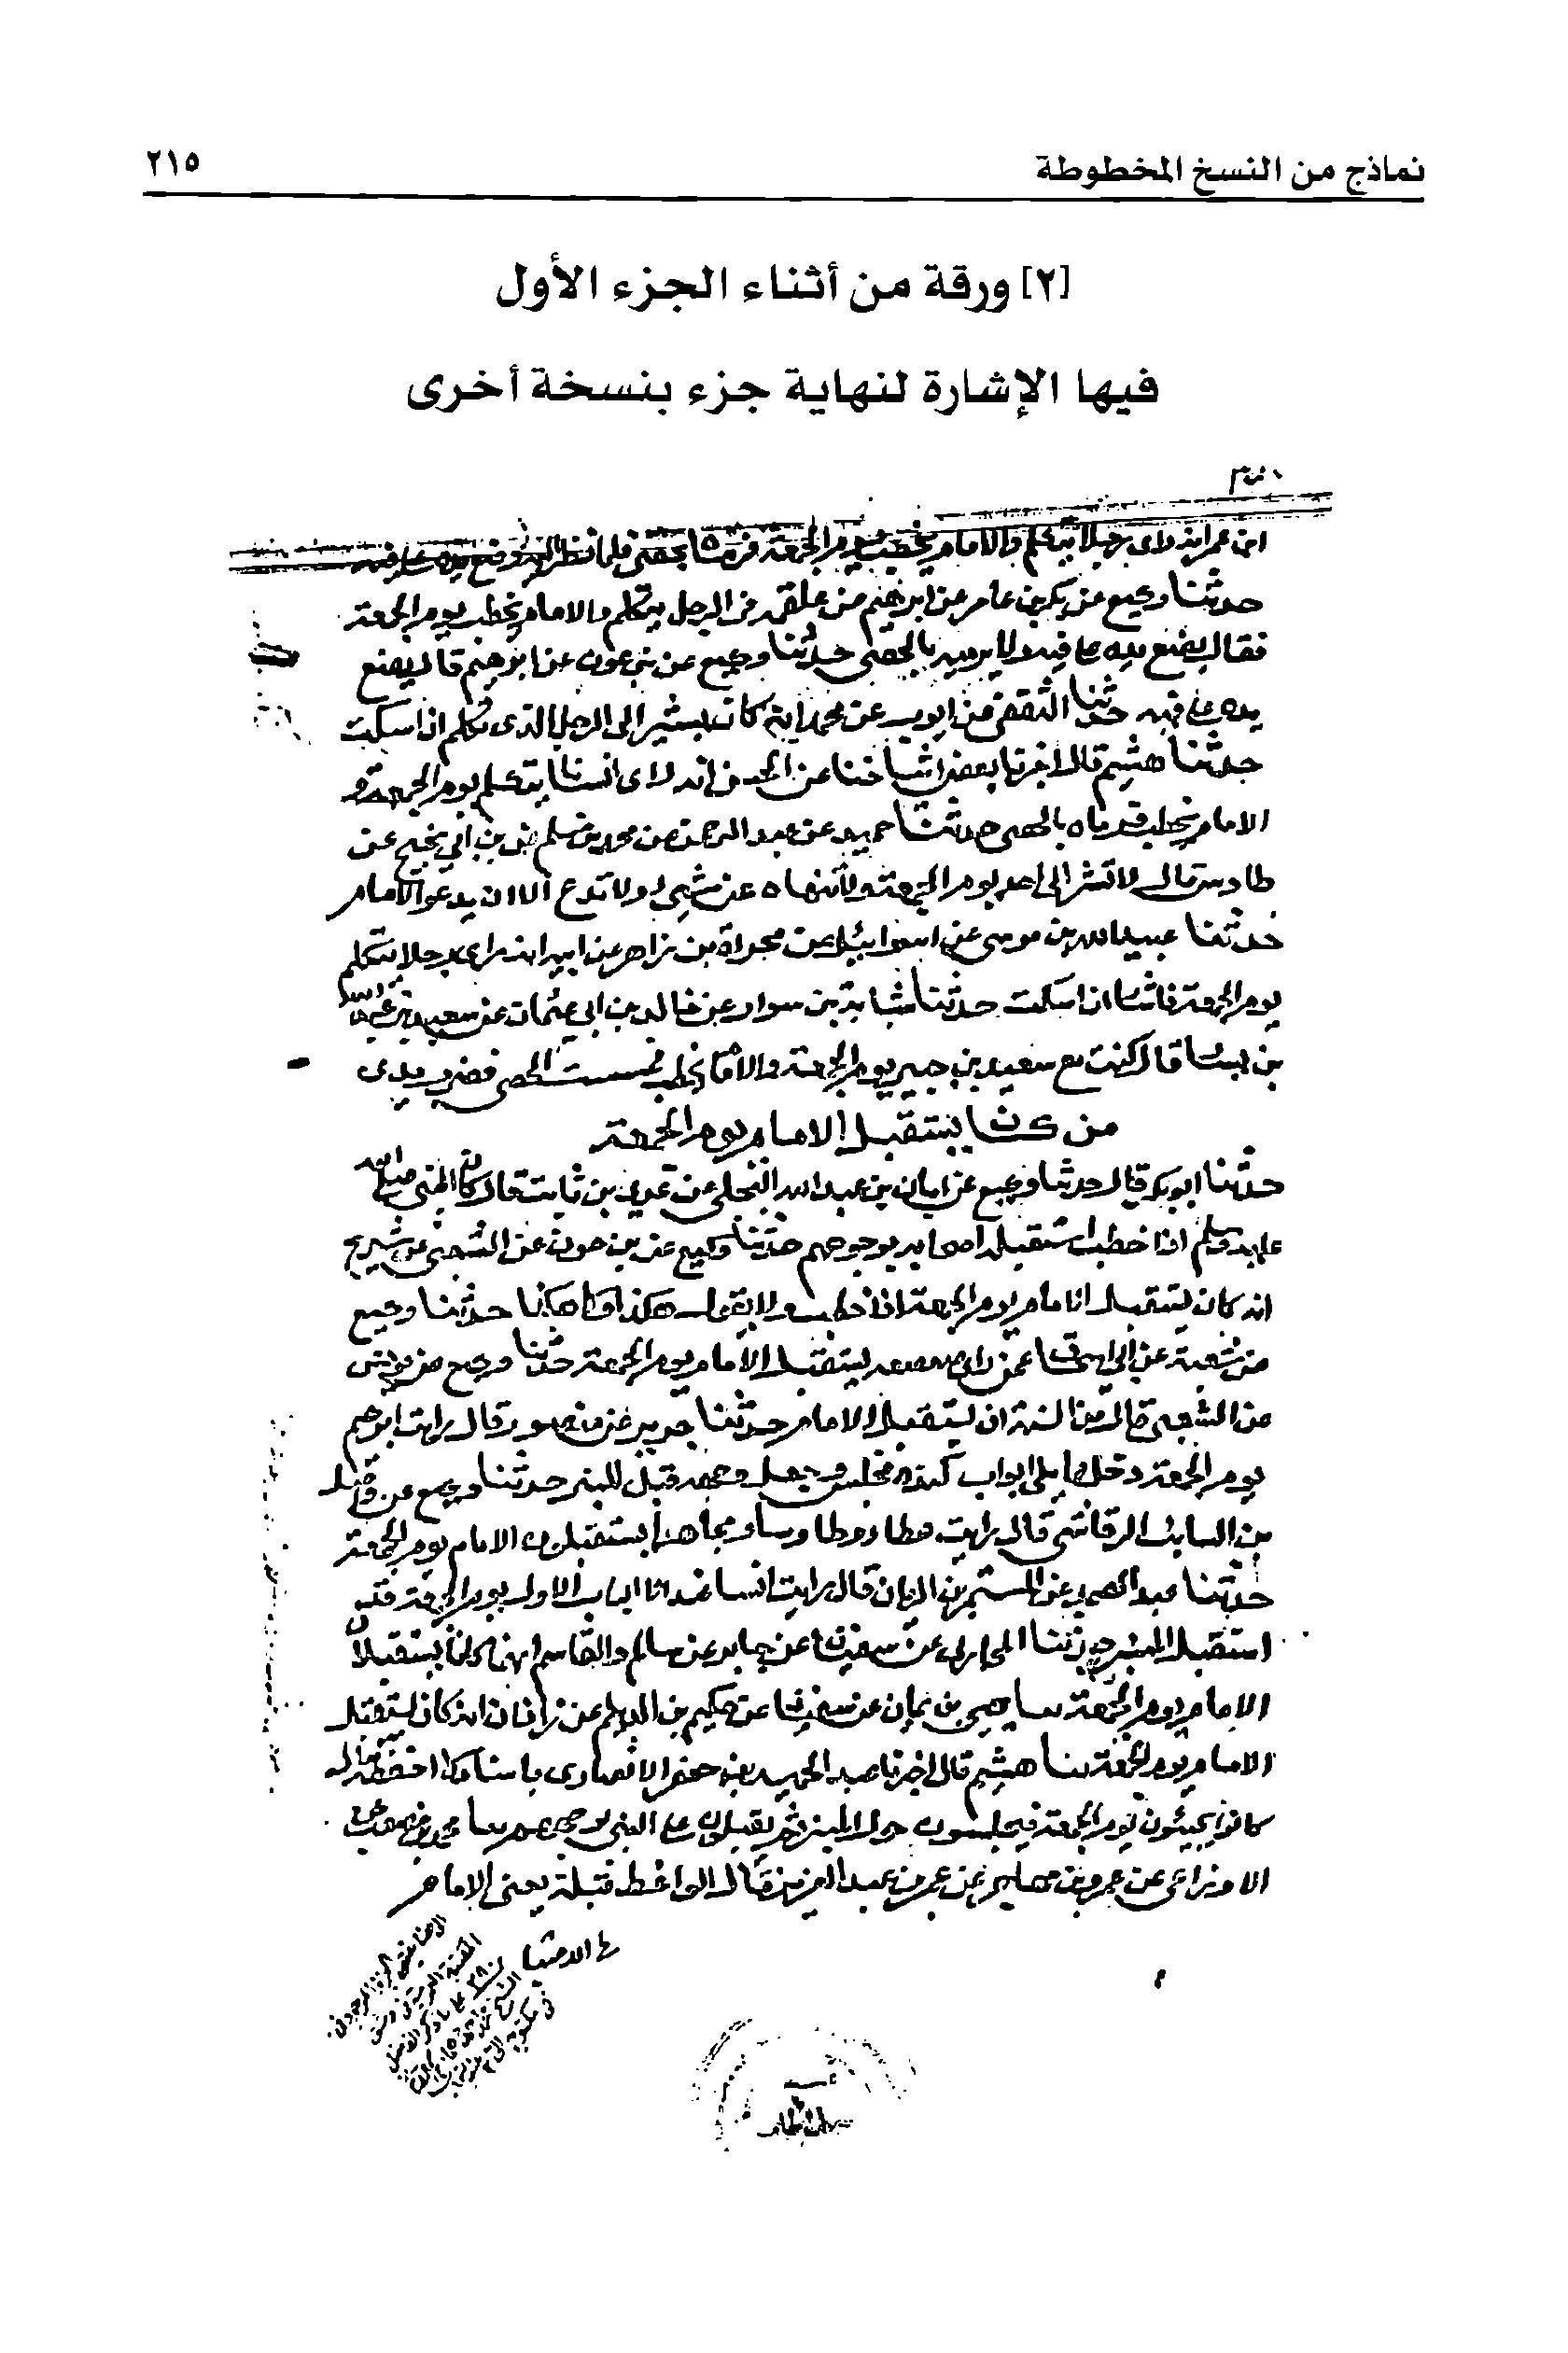 نماذج من النسخ المخطوطة
٢١٥
[٢] ورقة من أثناء الجزء الأول
فيها الإشارة لنهاية جزء بنسخة أخرى
ابن عمر انه راى رجلا يتكلم والامام يخطب يوم الجمعة فرماه بحصى فلما نظر اليه وضع يده على فيه
حدثنا وكيع عن بكر بن عامر عن ابرهيم عن علقمه في الرجل يتكلم والامام يخطب يوم الجمعة
فقال يضع يده على فيه ولا يرميه بالحصى حدثنا وكيع عن بن عون عن ابرهيم قال يضع
يده على فيه حدثنا الثقفي عن ايوب عن محمد انه كان يشير الى الرجل الذى تكلم ان اسكت
حدثنا هشيم قال اخبرنا بعض اشياخنا عن الحسن انه راى انسانا يتكلم يوم الجمعة و
الامام يخطب فرماه بالحصى حدثنا حميد عن عبد الرحمن عن محمد بن مسلم عن بن ابي نجيح عن
طاوس قال لا تشر الى احد يوم الجمعة ولا تنهاه عن شيء ولا تدع الا ان يدعو الامام
حدثنا عبيد الله بن موسى عن اسرائيل عن مجزاة بن زاهر عن ابيه انه راى رجلا يتكلم
يوم الجمعة فاشار ان اسكت حدثنا شبابة بن سوار عن خالد بن ابي عثمان عن سعيد بن عبد الله
بن يسار قال كنت مع سعيد بن جبير يوم الجمعة والامام يخطب فمسست الحصى فضرب يدى
من كان يستقبل الامام يوم الجمعة
حدثنا ابو بكر قال حدثنا وكيع عن ابان بن عبد الله البجلي عن عدي بن ثابت قال كان النبي صلى الله
عليه وسلم اذا خطب استقبله اصحابه بوجوههم حدثنا وكيع عن بن عون عن الشعبي عن شريح
انه كان يستقبل الامام يوم الجمعة اذا خطب ولا يقول هكذا ولا هكذا حدثنا وكيع
عن شعبة عن ابي اسحق عمن راى يستقبل الامام يوم الجمعة حدثنا وكيع عن يونس
عن الشعبي قال من السنة ان يستقبل الامام حدثنا جرير عن منصور قال رايت ابرهيم
يوم الجمعة دخل ما يلي ابواب كندة فجلس وجعل وجهه قبل المنبر حدثنا وكيع عن
بن السايب الرقاشي قال رايت عطا وطاوسا ومجاهدا يستقبلون الامام يوم الجمعة
حدثنا عبد الصمد عن المستمر بن الريان قال رايت انسا عند الباب الاول يوم الجمعة قد
استقبل المنبر حدثنا المحاربي عن سفيان عن جابر عن سالم والقاسم انهما كانا يستقبلان
الامام يوم الجمعة حدثنا يحيى بن يمان عن سفيان عن حكيم بن الديلم عن زاذان انه كان يستقبل
الامام يوم الجمعة حدثنا هشيم قال اخبرنا عبد الحميد بن جعفر الانصارى باسناد
كانوا يجيئون يوم الجمعة فيجلسون حول المنبر ثم يقبلون على النبي بوجوههم حدثنا
الاوزاعى عن عمرو بن مهاجر عن عمر بن عبد العزيز قال الواعظ قبلة يعنى الامام